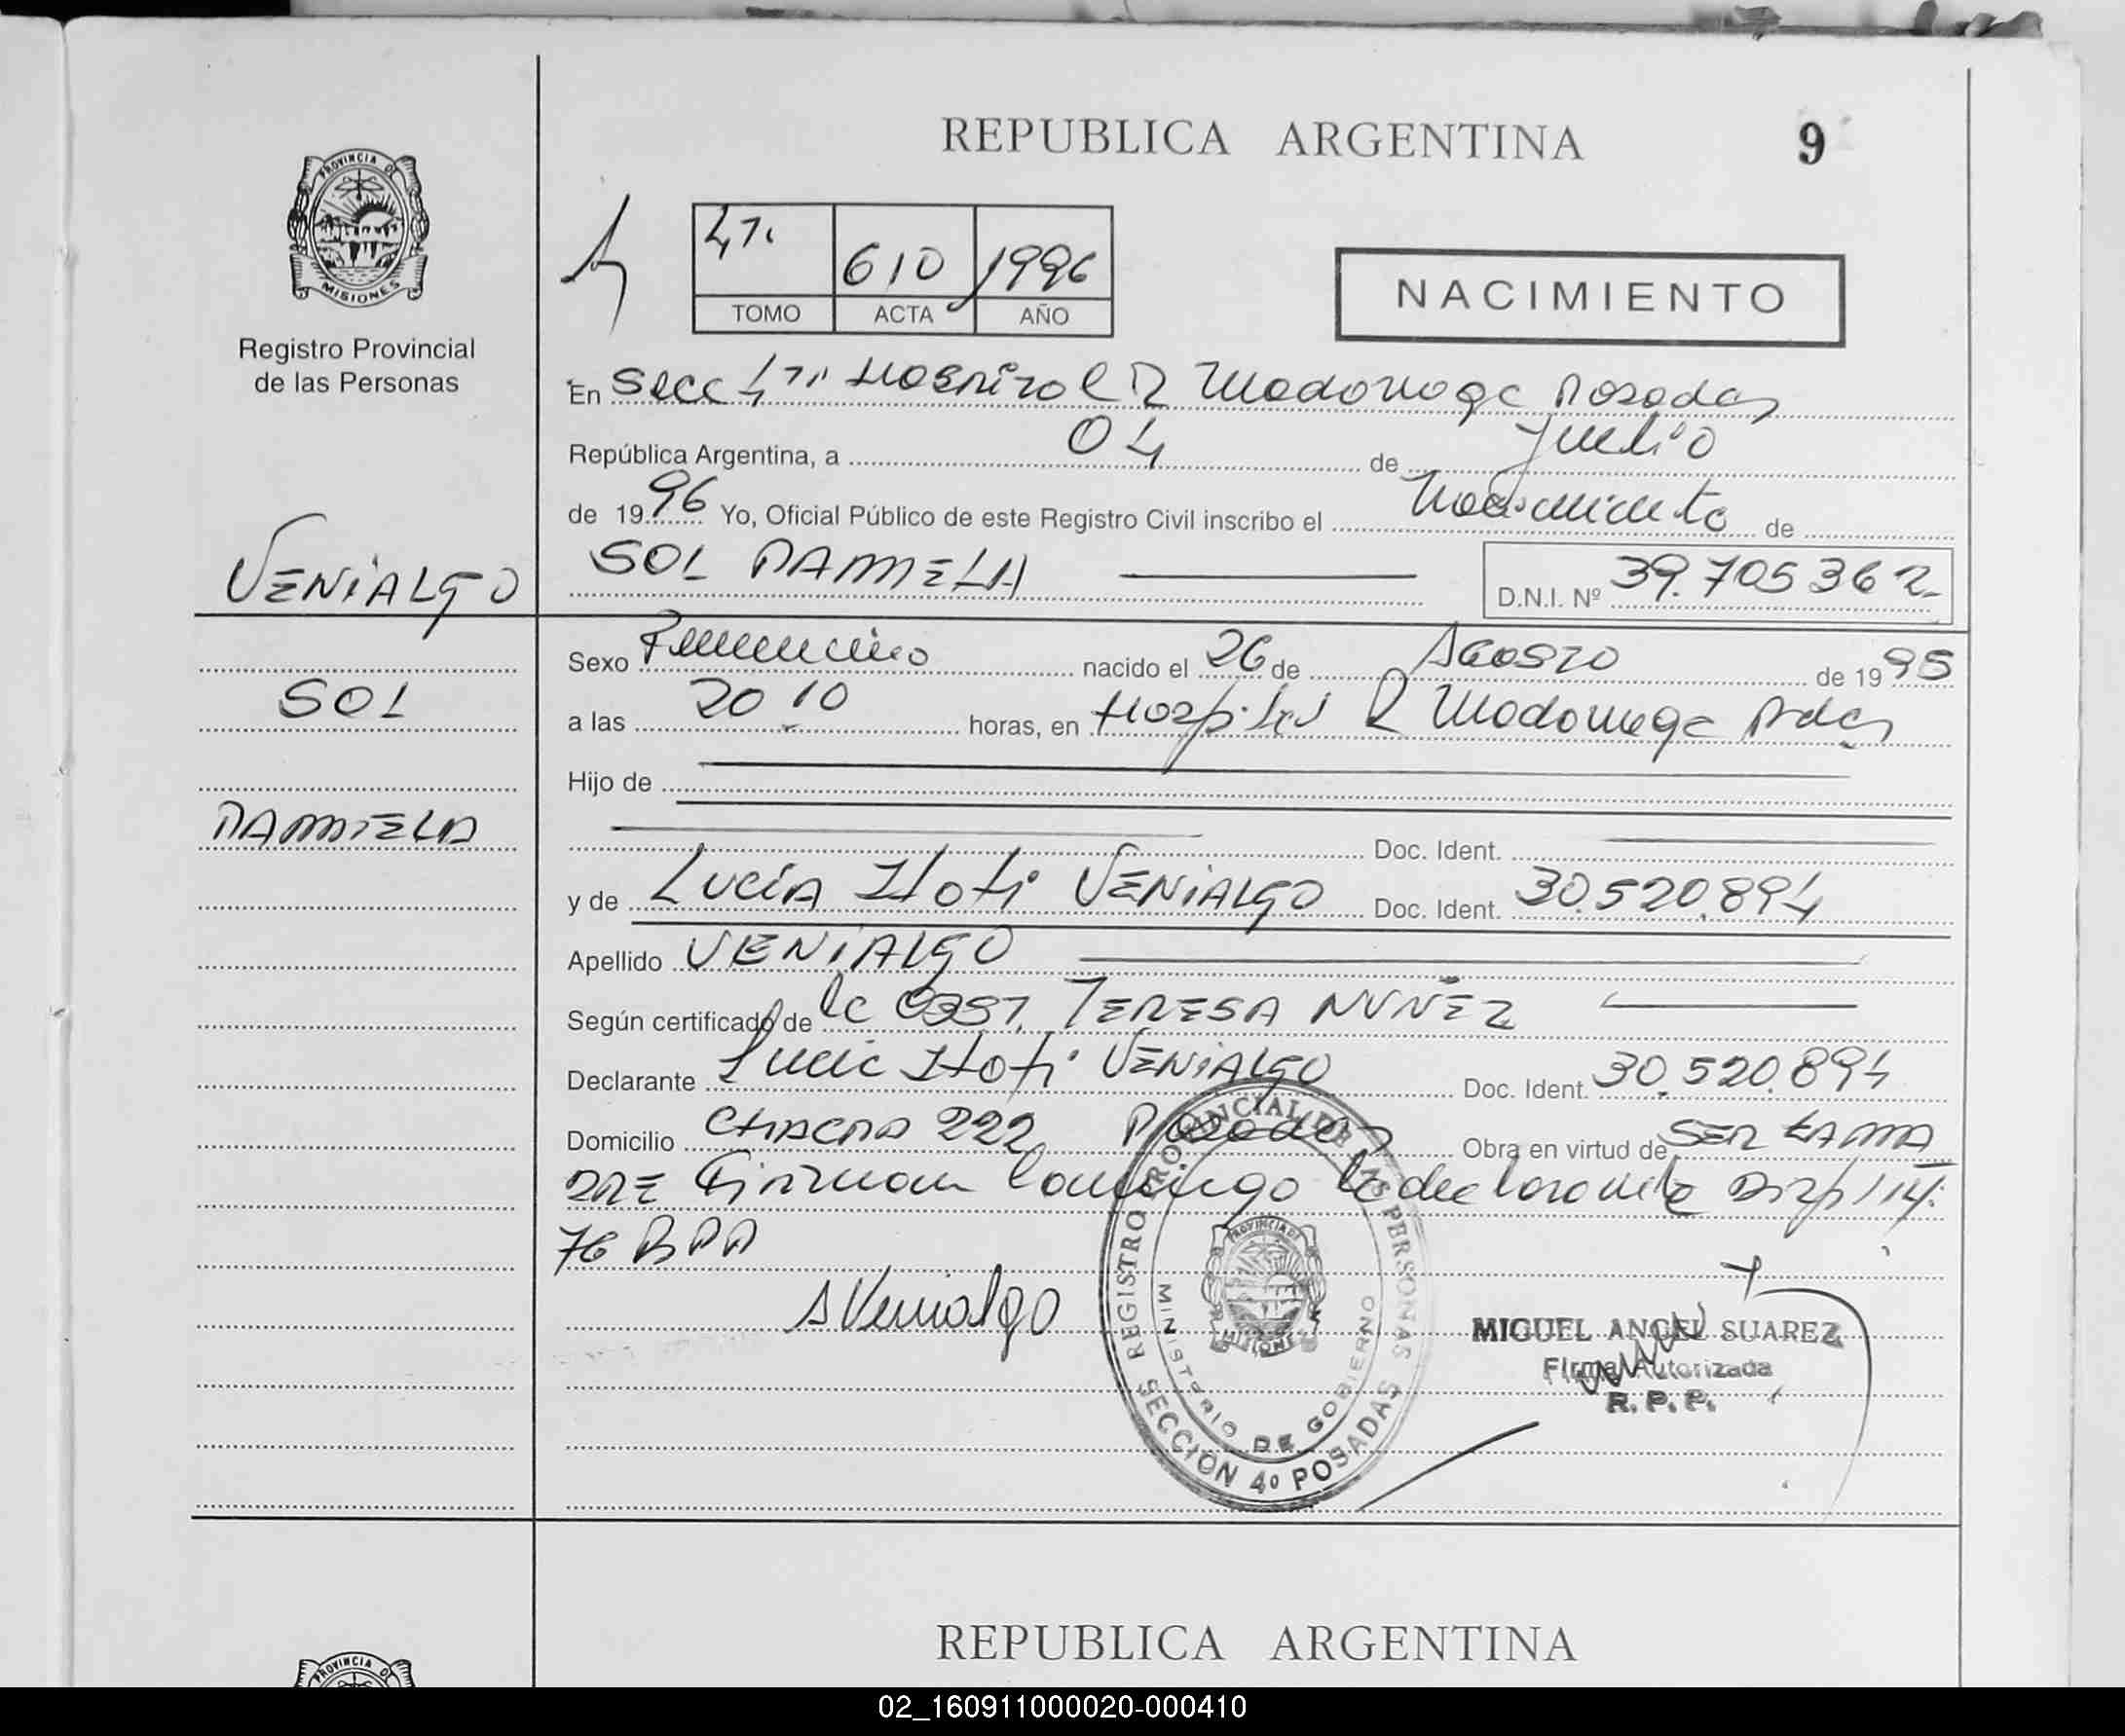 REPUBLICA ARGENTINA
9
PROVINCIA DE
MISIONES
Registro Provincial
de las Personas
4ta
610
1996
TOMO
ACTA
AÑO
NACIMIENTO
En Secc 4ta Hospital R Madariaga Posadas
República Argentina, a 04 de Julio
de 1996 Yo, Oficial Público de este Registro Civil inscribo el Nacimiento de
VENIALGO
SOL PAMELA
D.N.I. Nº 39.705362
Sexo Femenino nacido el 26 de AGOSTO de 1995
SOL
a las 20 10 horas, en Hospital R Madariaga Pdas
Hijo de
PAMELA
Doc. Ident.
y de LUCIA Itati VENIALGO Doc. Ident. 30.520.894
Apellido VENIALGO
Según certificado de TERESA NUÑEZ
Declarante Lucia Itati VENIALGO Doc. Ident. 30.520.894
Domicilio CHACRA 222 Posadas Obra en virtud de SER LA MA
DRE Firman conmigo la declarante
76
Venialgo
REGISTRO PROVINCIAL DE LAS PERSONAS
MINISTERIO DE GOBIERNO
PROVINCIA DE
MISIONES
SECCION 4º POSADAS
MIGUEL ANGEL SUAREZ
Firma Autorizada
R. P. P.
REPUBLICA ARGENTINA
PROVINCIA DE
02_160911000020-000410